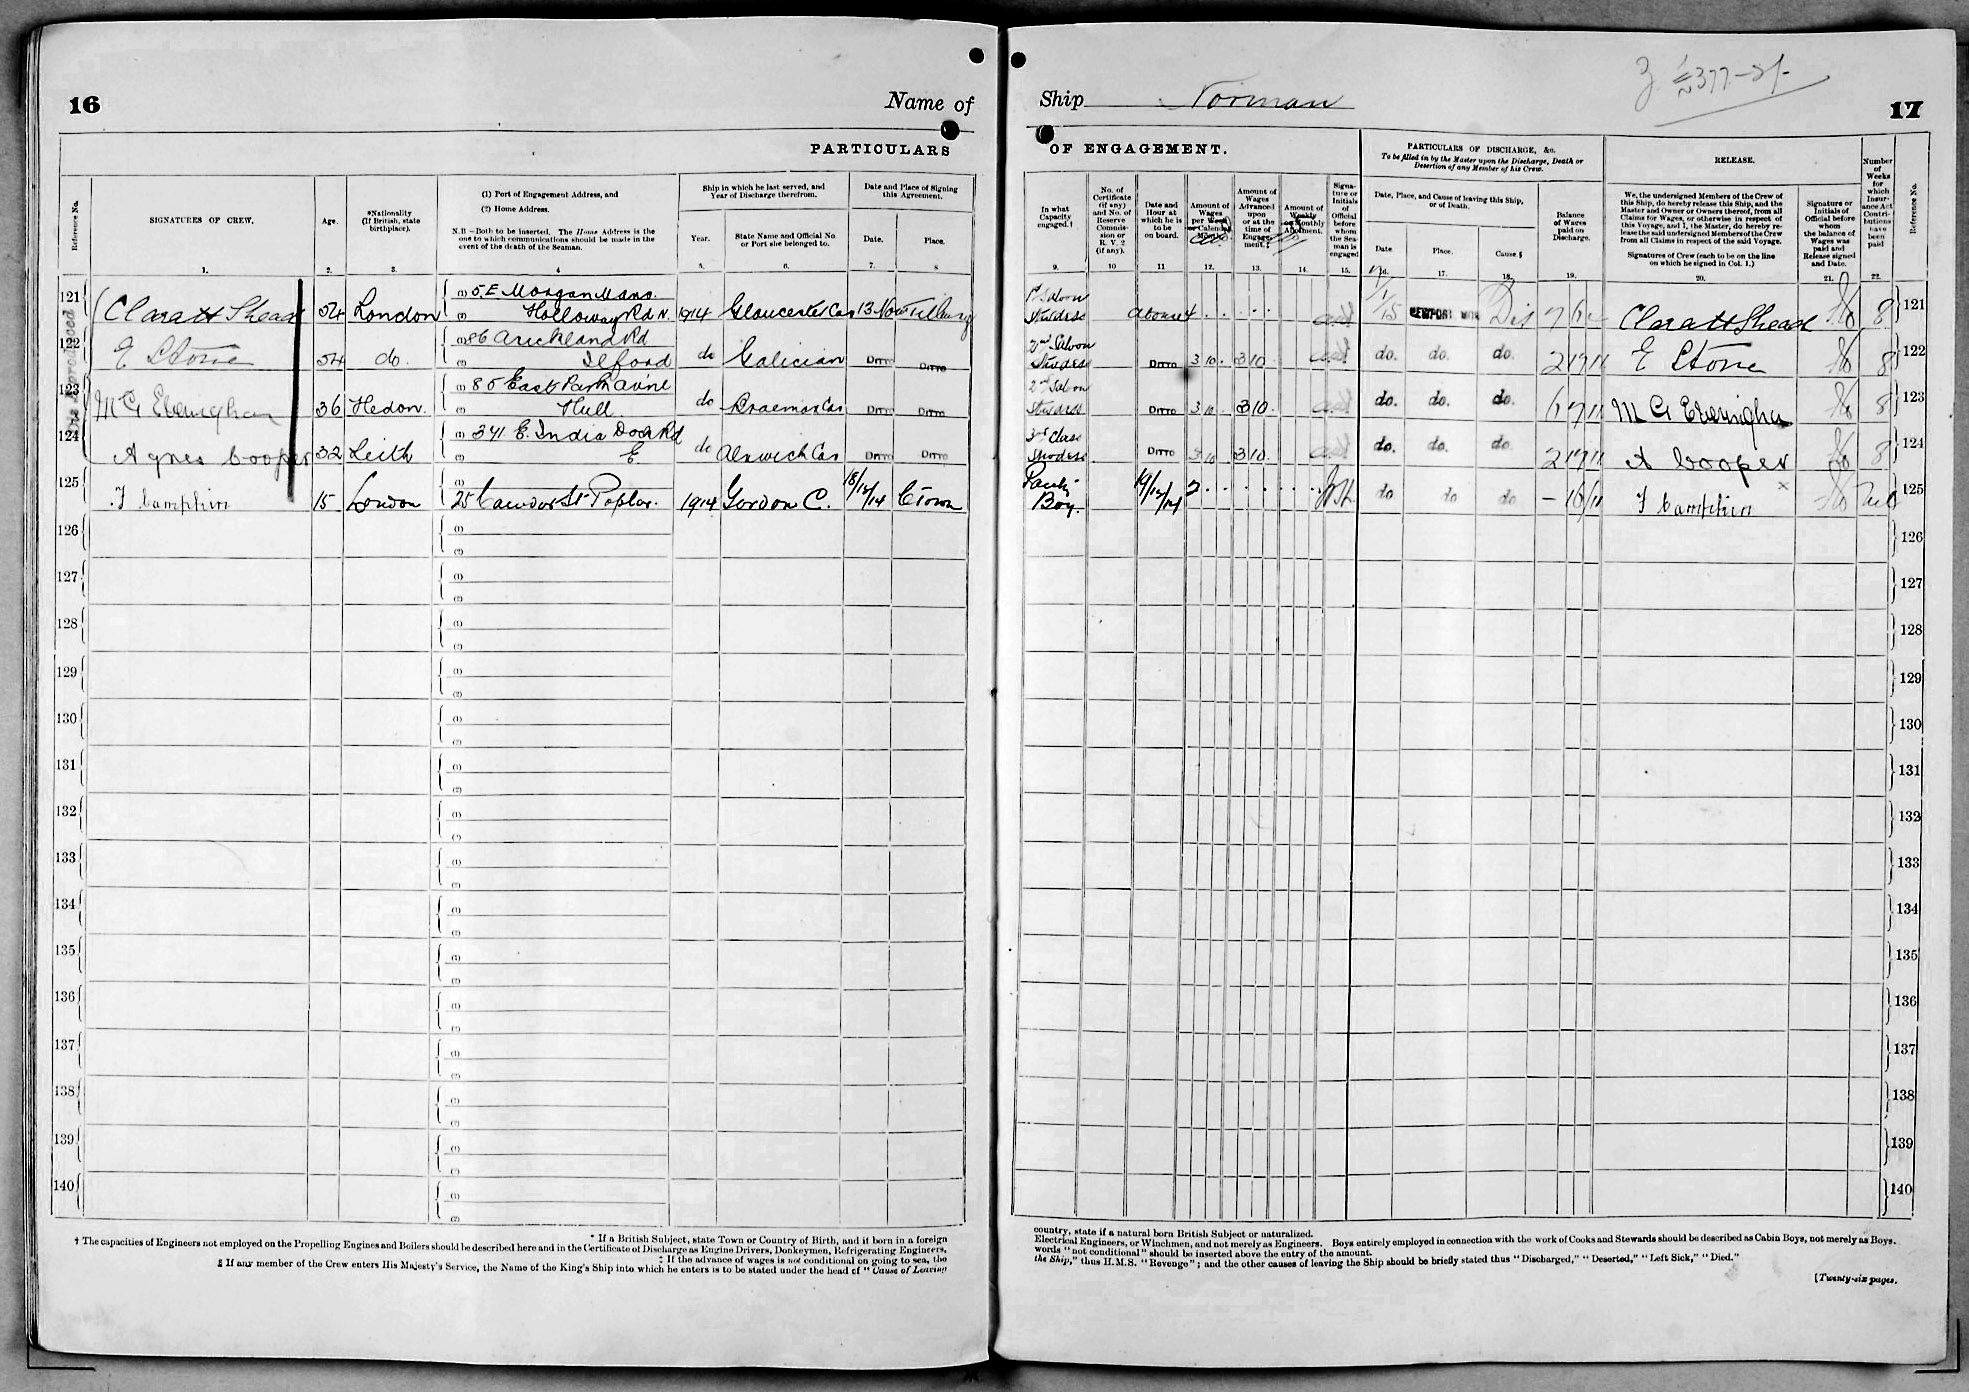 16
Name of
PARTICULARS
Reference No.
SIGNATURES OF CREW.
Age.
*Nationality
(If British, state
birthplace).
(1) Port of Engagement Address, and
(2) Home Address.
N.B.—Both to be inserted. The Home Address is the
one to which communications should be made in the
event of the death of the Seaman.
Ship in which he last served, and
Year of Discharge therefrom.
Year.
State Name and Official No.
or Port she belonged to.
Date and Place of Signing
this Agreement.
Date.
Place.
1. 2. 3. 4 5. 6. 7. 8
121 Clara H Shead 54 London (1) 5. E Morgan Mans. (2) Holloway Rd N. 1914 Gloucester Cas 13 Nov Tilbury
122 E Stone 54 do. 86 Auckland Rd Ilford do Galician DITTO DITTO
123 M G 36 Hedon. 85 East Park Avine Hull do Braemar Cas DITTO DITTO
124 Agnes Cooper 32 Leith 341 E. India Dock Rd E do Alnwick Cas DITTO DITTO
125 J Camphin 15 London 25 Cawdor St Poplar. 1914 Gordon C. 18/12/14 C Town
126
127
128
129
130
131
132
133
134
135
136
137
138
139
140
* If a British Subject, state Town or Country of Birth, and if born in a foreign
† The capacities of Engineers not employed on the Propelling Engines and Boilers should be described here and in the Certificate of Discharge as Engine Drivers, Donkeymen, Refrigerating Engineers,
‡ If the advance of wages is not conditional on going to sea, the
§ If any member of the Crew enters His Majesty's Service, the Name of the King's Ship into which he enters is to be stated under the head of "Cause of Leaving
Ship Norman
17
OF ENGAGEMENT.
PARTICULARS OF DISCHARGE, &c.
To be filled in by the Master upon the Discharge, Death or
Desertion of any Member of his Crew.
RELEASE.
In what
Capacity
engaged.†
No. of
Certificate
(if any)
and No. of
Reserve
Commis-
sion or
R. V. 2
(if any).
Date and
Hour at
which he is
to be
on board.
Amount of
Wages
per Week
or Calendar
Month.
Amount of
Wages
Advanced
upon
or at the
time of
Engage-
ment.‡
Amount of
Weekly
or Monthly
Allotment.
Signa-
ture or
Initials
of
Official
before
whom
the Sea-
man is
engaged
Date, Place, and Cause of leaving this Ship,
or of Death.
Date.
Place.
Cause.§
Balance
of Wages
paid on
Discharge.
We, the undersigned Members of the Crew of
this Ship, do hereby release this Ship, and the
Master and Owner or Owners thereof, from all
Claims for Wages, or otherwise in respect of
this Voyage, and I, the Master, do hereby re-
lease the said undersigned Members of the Crew
from all Claims in respect of the said Voyage.
Signatures of Crew (each to be on the line
on which he signed in Col. 1.)
Signature or
Initials of
Official before
whom
the balance of
Wages was
paid and
Release signed
and Date.
Number
of
Weeks
for
which
Insur-
ance Act
Contri-
butions
have
been
paid
Reference No.
9. 10 11 12. 13. 14. 15. 16. 17. 18. 19. 20. 21. 22.
1st Saloon Stwdess at once 4 1/1/15 NEWPORT MON Dis Clara H Shead 8 121
2nd Saloon Stwdess DITTO 3 10 . 3 10 . do. do. do. 2 17 11 E Stone 8 122
2nd Saloon Stwdess DITTO 3 10 . 3 10 . do. do. do. 6 17 11 M G 8 123
3rd Class Stwdess DITTO 3 10 3 10 . do. do. do. 2 17 11 A Cooper 8 124
Pantry Boy. 19/12/14 2 do do do — 16 11 J Camphin × Nil 125
126
127
128
129
130
131
132
133
134
135
136
137
138
139
140
country, state if a natural born British Subject or naturalized.
Electrical Engineers, or Winchmen, and not merely as Engineers. Boys entirely employed in connection with the work of Cooks and Stewards should be described as Cabin Boys, not merely as Boys.
words "not conditional" should be inserted above the entry of the amount.
the Ship," thus H.M.S. "Revenge"; and the other causes of leaving the Ship should be briefly stated thus "Discharged," "Deserted," "Left Sick," "Died."
[Twenty-six pages.